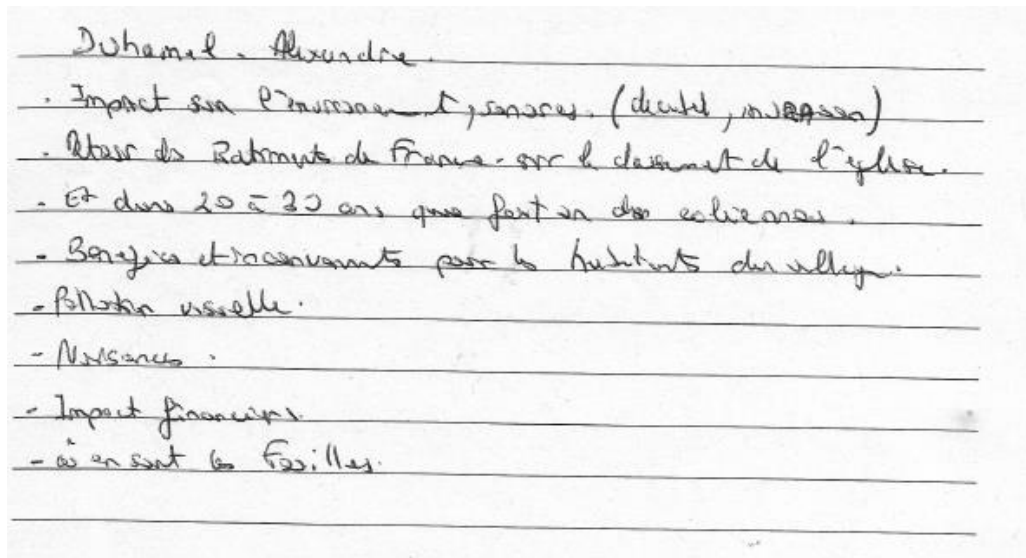 Duhamel. Alexandre.
. Impact sur l'environnement, sonores. (decibel,
. Batiments de France. sur le classement de l'eglise.
. Et dans 20 à 30 ans que fait on des eoliennes.
- Benefices et inconvenants pour les habitants du village.
- Pollution visuelle.
- Nuisances.
- Impact financiers.
- où en sont les Fouilles.